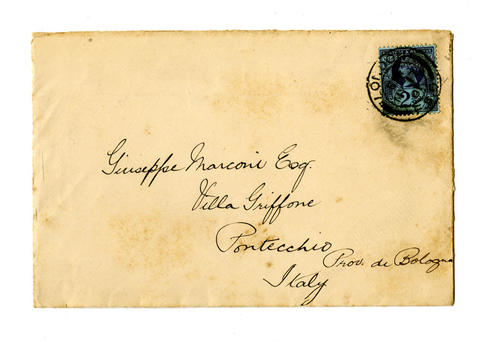 Giuseppe Marconi Esq.
Villa Griffone
Pontecchio
Prov. di Bologna
Italy